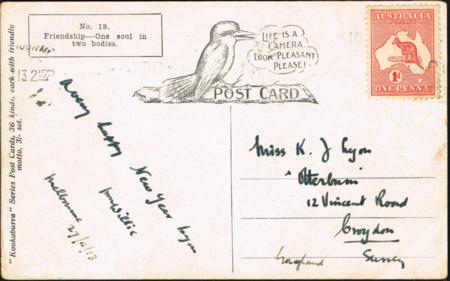 No. 18.
Friendship—One soul in
two bodies.
LIFE IS A
CAMERA
LOOK PLEASANT
PLEASE!
POST CARD
AUSTRALIA
1D
ONE PENNY
"Kookaburra" Series Post Cards, 36 kinds, each with friendly
motto, 3/- set.
A very happy
New Year
Willie
Melbourne
Miss K. J Lyon
"Otterburn"
12 Vincent Road
Croydon
Surrey
England